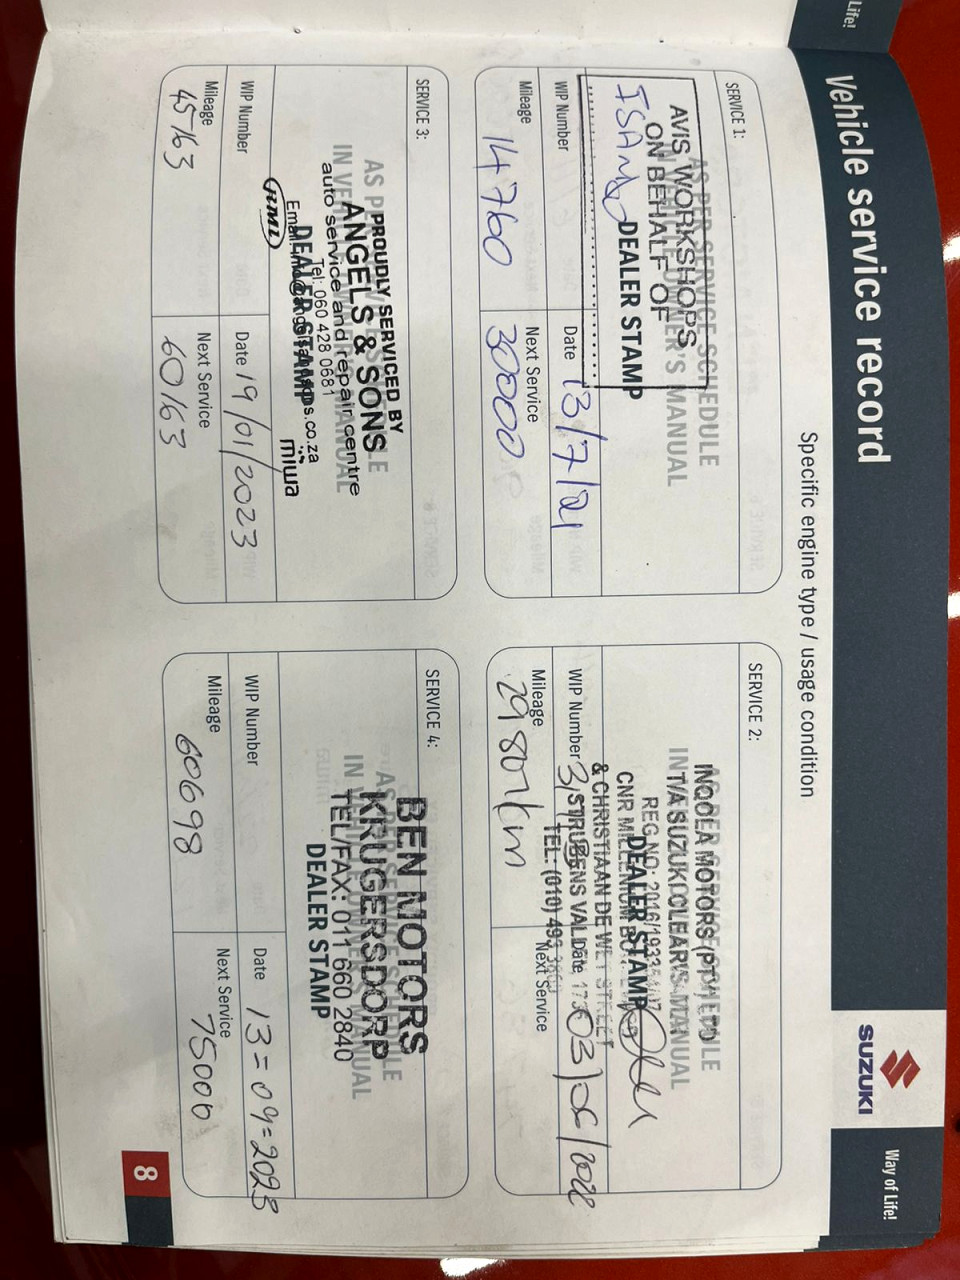 Life!
Vehicle service record
SUZUKI
Way of Life!
Specific engine type / usage condition
SERVICE 1:
AS PER SERVICE SCHEDULE
IN VEHICLE OWNER'S MANUAL
AVIS WORKSHOPS
ON BEHALF OF
DEALER STAMP
WIP Number
Date 13/7/21
Mileage
14760
Next Service
30000
SERVICE 2:
INQOLA MOTORS (PTY) LTD
T/A SUZUKI CLEAR
REG NO: 2016/1933
CNR MILLENIUM
DEALER STAMP
& CHRISTIAAN DE WET STREET
STRUBENS VAL
TEL: (010) 493
WIP Number
Date
03/06/2022
Mileage
29807km
Next Service
SERVICE 3:
AS PER SERVICE SCHEDULE
IN VEHICLE OWNER'S MANUAL
PROUDLY SERVICED BY
ANGELS & SONS
auto service and repair centre
Tel: 060 428 0681
DEALER STAMP
Email:
RMI
miwa
WIP Number
Date 19/01/2023
Mileage
45163
Next Service
60163
SERVICE 4:
AS PER SERVICE SCHEDULE
IN VEHICLE OWNER'S MANUAL
BEN MOTORS
KRUGERSDORP
TEL/FAX: 011 660 2840
DEALER STAMP
WIP Number
Date 13=09=2023
Mileage
60698
Next Service
75000
8